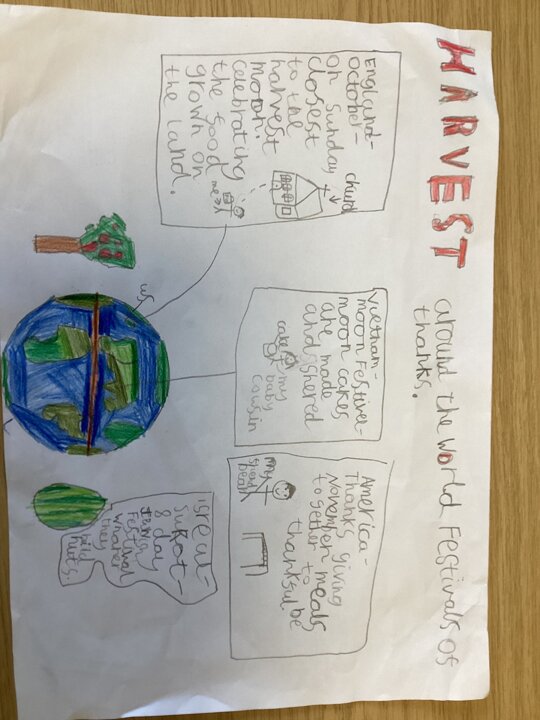 HARVEST around the world Festivals of
thanks.
England-
October-
on sunday
closest
to the
harvest
moon.
celebrating
the food
grown on
the land.
church
me→
us
Vietnam-
moon Festivel-
moon cakes
are made
and shered
cake
my
baby
cowsin
America-
Thanks giving
November meals
together to
be
thanksul
my
isreal-
sukot-
8 day
Festival
they
bild
huts.